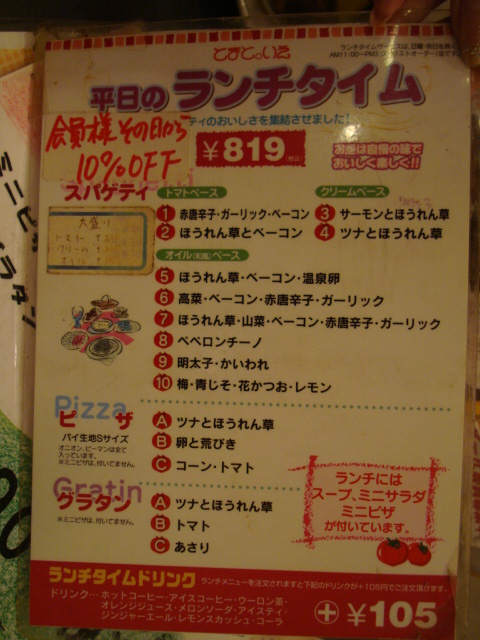 とまとのいえ
平日の ランチタイム
ティのおいしさを集結させました!
会員様その日から
10%OFF
¥819(税込)
お昼は自慢の味で
おいしく楽しく!!
スパゲティ
トマトベース
クリームベース
1 赤唐辛子・ガーリック・ベーコン
2 ほうれん草とベーコン
3 サーモンとほうれん草
4 ツナとほうれん草
大盛り
オイル(和風)ベース
5 ほうれん草・ベーコン・温泉卵
6 高菜・ベーコン・赤唐辛子・ガーリック
7 ほうれん草・山菜・ベーコン・赤唐辛子・ガーリック
8 ペペロンチーノ
9 明太子・かいわれ
10 梅・青じそ・花かつお・レモン
Pizza
ピザ
パイ生地Sサイズ
オニオン、ピーマンは全て
入っています。
※ミニピザは、付いてません。
A ツナとほうれん草
B 卵と荒びき
C コーン・トマト
Gratin
グラタン
※ミニピザは、付いてません。
A ツナとほうれん草
B トマト
C あさり
ランチには
スープ、ミニサラダ
ミニピザ
が付いています。
ランチタイムドリンク
ランチメニューを注文されますと下記のドリンクが+105円でご注文頂けます。
ドリンク…ホットコーヒー・アイスコーヒー・ウーロン茶・
オレンジジュース・メロンソーダ・アイスティ・
ジンジャーエール・レモンスカッシュ・コーラ
+¥105